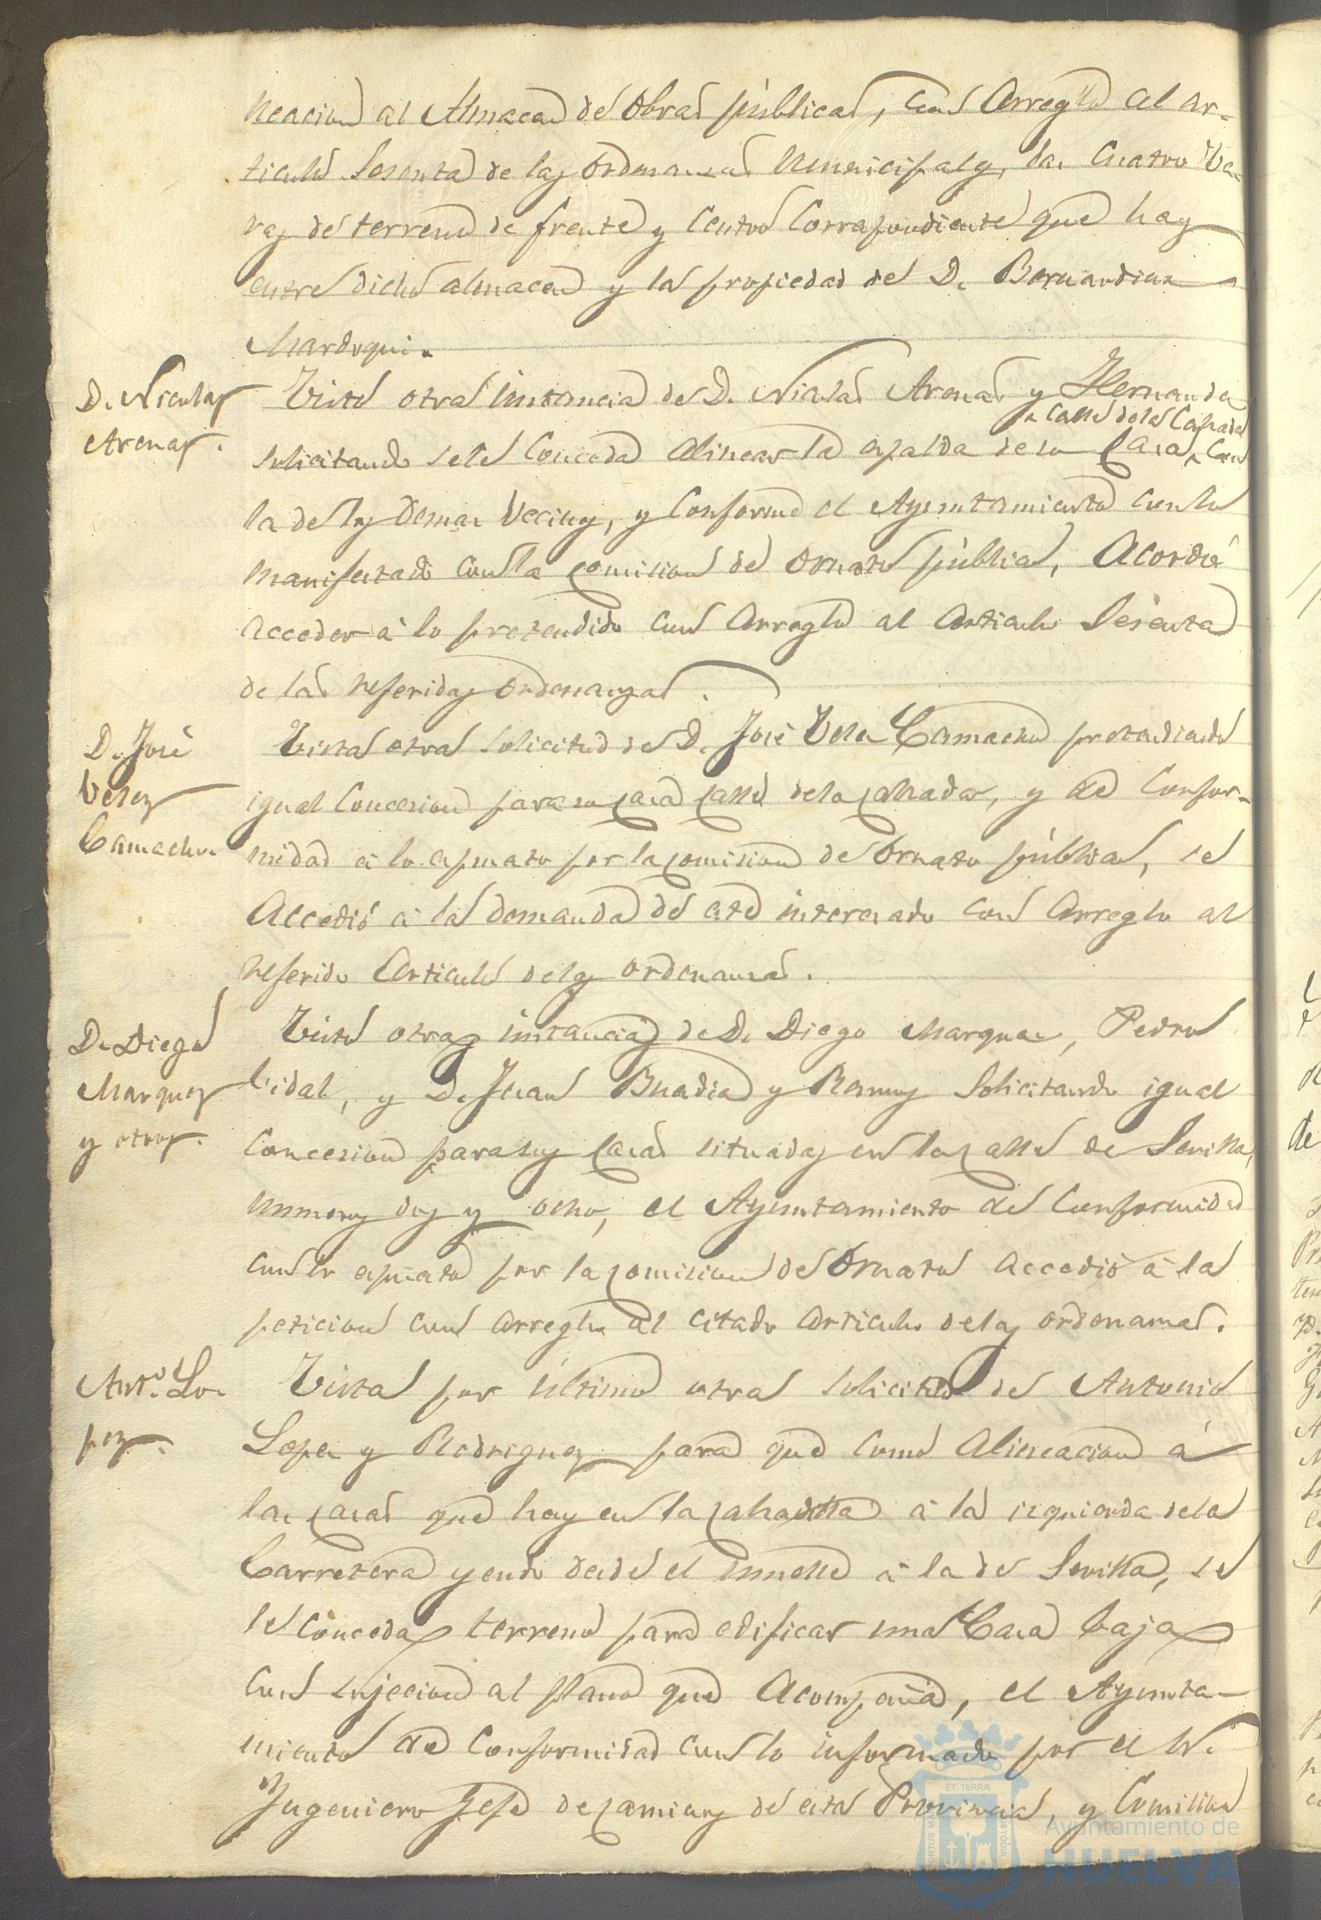 neacion al Almacen de Obras públicas, con Arreglo al ar-
ticulo Sesenta de las ordenanzas Municipales, las cuatro va-
ras de terreno de frente y centro Correspondiente que hay
entre dicho almacen y la propiedad de D. Bernardino
Mardoqui.
D. Nicolas
Arenas.
Vista otra instancia de D. Nicolas Arenas y Hernandez
calle de la Calzada
solicitando se le Conceda alinear la espalda de su Casa, con
la de los demas Vecinos, y Conforme el Ayuntamiento con lo
manifestado con la comision de Ornato público, Acordó
acceder á lo pretendido con Arreglo al Articulo Sesenta
de las referidas Ordenanzas.
D. José
Velez
Camacho.
Vista otra solicitud de D. José Velez Camacho pretendiendo
igual Concesion para su casa calle de la calzada, y de Confor-
midad á lo espuesto por la comision de Ornato público, se
Accedió á la demanda de este interesado con Arreglo al
referido Articulo de las ordenanzas.
D. Diego
Marquez
y otros.
Vista otras instancias de D. Diego Marquez, Pedro
Vidal, y D. Juan y Ramos Solicitando igual
Concesion para sus casas situadas en la calle de Sevilla,
numeros dos y ocho, el Ayuntamiento de Conformidad
con lo espuesto por la comision de Ornato accedió á la
peticion con arreglo al citado articulo de las ordenanzas.
Ant.o Lo-
pez.
Vista por último otra solicitud de Antonio
Lopez y Rodriguez para que como Alineacion á
las casas que hay en la calzada á la izquierda de la
Carretera yendo desde el muelle á la de Sevilla, se
le Conceda terreno para edificar una Casa baja
con sujecion al plano que Acompaña, el Ayunta-
miento de Conformidad con lo informado por el Sr.
Ingeniero Jefe de caminos de esta Provincia, y Comision
Ayuntamiento de
HUELVA